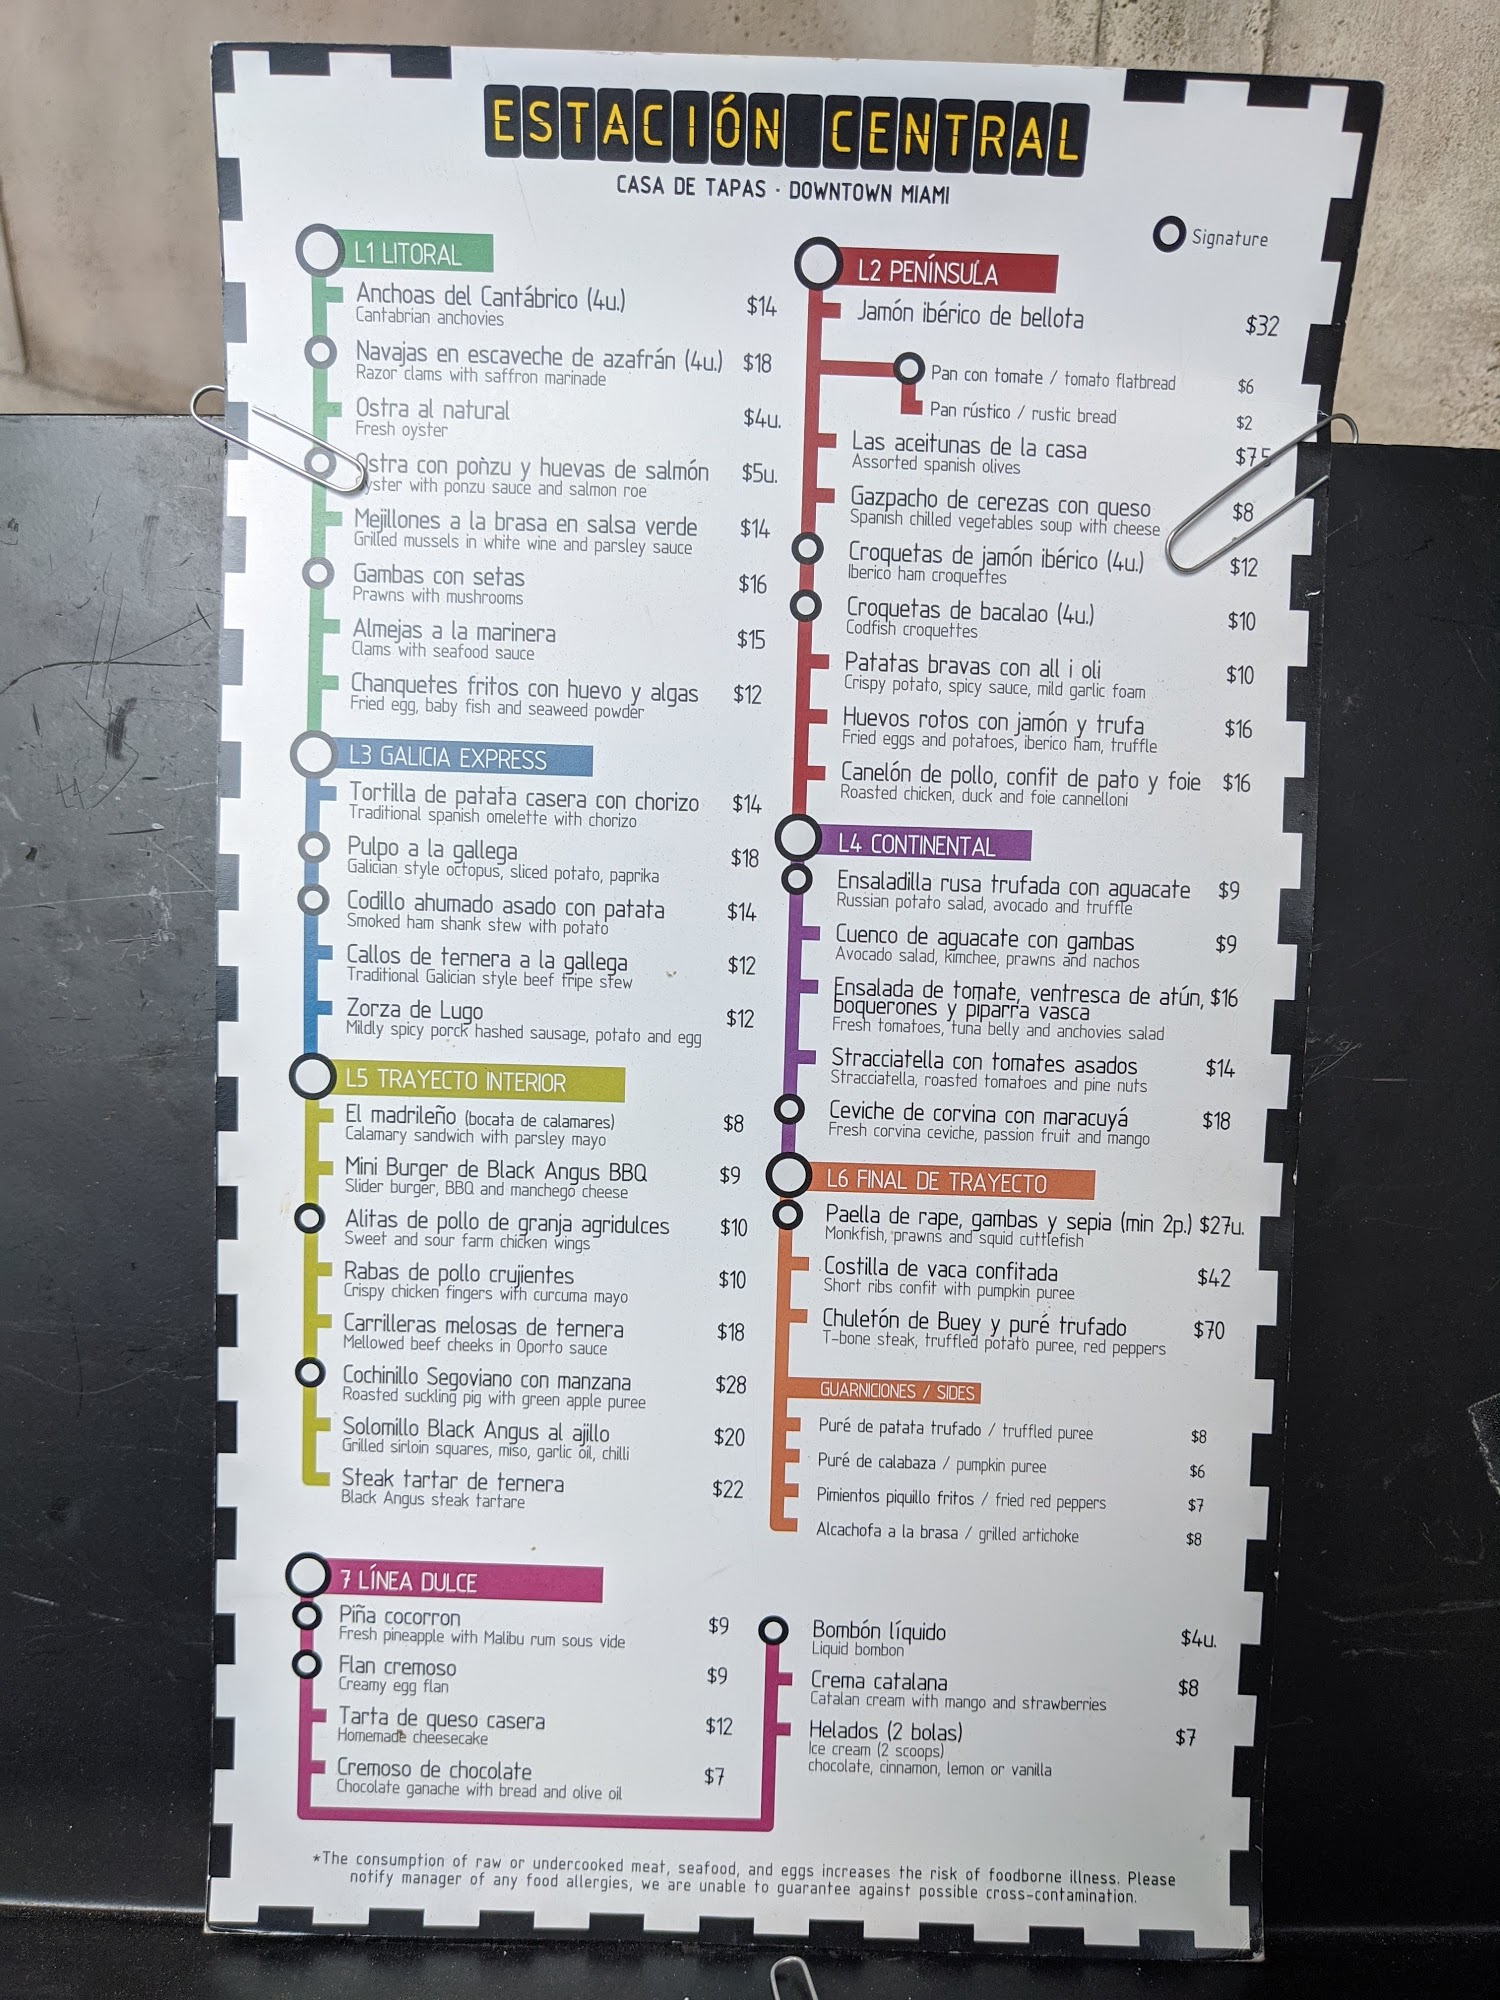 ESTACIÓN CENTRAL
CASA DE TAPAS · DOWNTOWN MIAMI
Signature
L1 LITORAL
Anchoas del Cantábrico (4u.) $14
Cantabrian anchovies
Navajas en escaveche de azafrán (4u.) $18
Razor clams with saffron marinade
Ostra al natural $4u.
Fresh oyster
Ostra con ponzu y huevas de salmón $5u.
Oyster with ponzu sauce and salmon roe
Mejillones a la brasa en salsa verde $14
Grilled mussels in white wine and parsley sauce
Gambas con setas $16
Prawns with mushrooms
Almejas a la marinera $15
Clams with seafood sauce
Chanquetes fritos con huevo y algas $12
Fried egg, baby fish and seaweed powder
L3 GALICIA EXPRESS
Tortilla de patata casera con chorizo $14
Traditional spanish omelette with chorizo
Pulpo a la gallega $18
Galician style octopus, sliced potato, paprika
Codillo ahumado asado con patata $14
Smoked ham shank stew with potato
Callos de ternera a la gallega $12
Traditional Galician style beef tripe stew
Zorza de Lugo $12
Mildly spicy porck hashed sausage, potato and egg
L5 TRAYECTO INTERIOR
El madrileño (bocata de calamares) $8
Calamary sandwich with parsley mayo
Mini Burger de Black Angus BBQ $9
Slider burger, BBQ and manchego cheese
Alitas de pollo de granja agridulces $10
Sweet and sour farm chicken wings
Rabas de pollo crujientes $10
Crispy chicken fingers with curcuma mayo
Carrilleras melosas de ternera $18
Mellowed beef cheeks in Oporto sauce
Cochinillo Segoviano con manzana $28
Roasted suckling pig with green apple puree
Solomillo Black Angus al ajillo $20
Grilled sirloin squares, miso, garlic oil, chilli
Steak tartar de ternera $22
Black Angus steak tartare
L2 PENÍNSULA
Jamón ibérico de bellota $32
Pan con tomate / tomato flatbread $6
Pan rústico / rustic bread $2
Las aceitunas de la casa $7.5
Assorted spanish olives
Gazpacho de cerezas con queso $8
Spanish chilled vegetables soup with cheese
Croquetas de jamón ibérico (4u.) $12
Iberico ham croquettes
Croquetas de bacalao (4u.) $10
Codfish croquettes
Patatas bravas con all i oli $10
Crispy potato, spicy sauce, mild garlic foam
Huevos rotos con jamón y trufa $16
Fried eggs and potatoes, iberico ham, truffle
Canelón de pollo, confit de pato y foie $16
Roasted chicken, duck and foie cannelloni
L4 CONTINENTAL
Ensaladilla rusa trufada con aguacate $9
Russian potato salad, avocado and truffle
Cuenco de aguacate con gambas $9
Avocado salad, kimchee, prawns and nachos
Ensalada de tomate, ventresca de atún, $16
boquerones y piparra vasca
Fresh tomatoes, tuna belly and anchovies salad
Stracciatella con tomates asados $14
Stracciatella, roasted tomatoes and pine nuts
Ceviche de corvina con maracuyá $18
Fresh corvina ceviche, passion fruit and mango
L6 FINAL DE TRAYECTO
Paella de rape, gambas y sepia (min 2p.) $27u.
Monkfish, prawns and squid cuttlefish
Costilla de vaca confitada $42
Short ribs confit with pumpkin puree
Chuletón de Buey y puré trufado $70
T-bone steak, truffled potato puree, red peppers
GUARNICIONES / SIDES
Puré de patata trufado / truffled puree $8
Puré de calabaza / pumpkin puree $6
Pimientos piquillo fritos / fried red peppers $7
Alcachofa a la brasa / grilled artichoke $8
7 LÍNEA DULCE
Piña cocorron $9
Fresh pineapple with Malibu rum sous vide
Flan cremoso $9
Creamy egg flan
Tarta de queso casera $12
Homemade cheesecake
Cremoso de chocolate $7
Chocolate ganache with bread and olive oil
Bombón líquido $4u.
Liquid bombon
Crema catalana $8
Catalan cream with mango and strawberries
Helados (2 bolas) $7
Ice cream (2 scoops)
chocolate, cinnamon, lemon or vanilla
*The consumption of raw or undercooked meat, seafood, and eggs increases the risk of foodborne illness. Please
notify manager of any food allergies, we are unable to guarantee against possible cross-contamination.